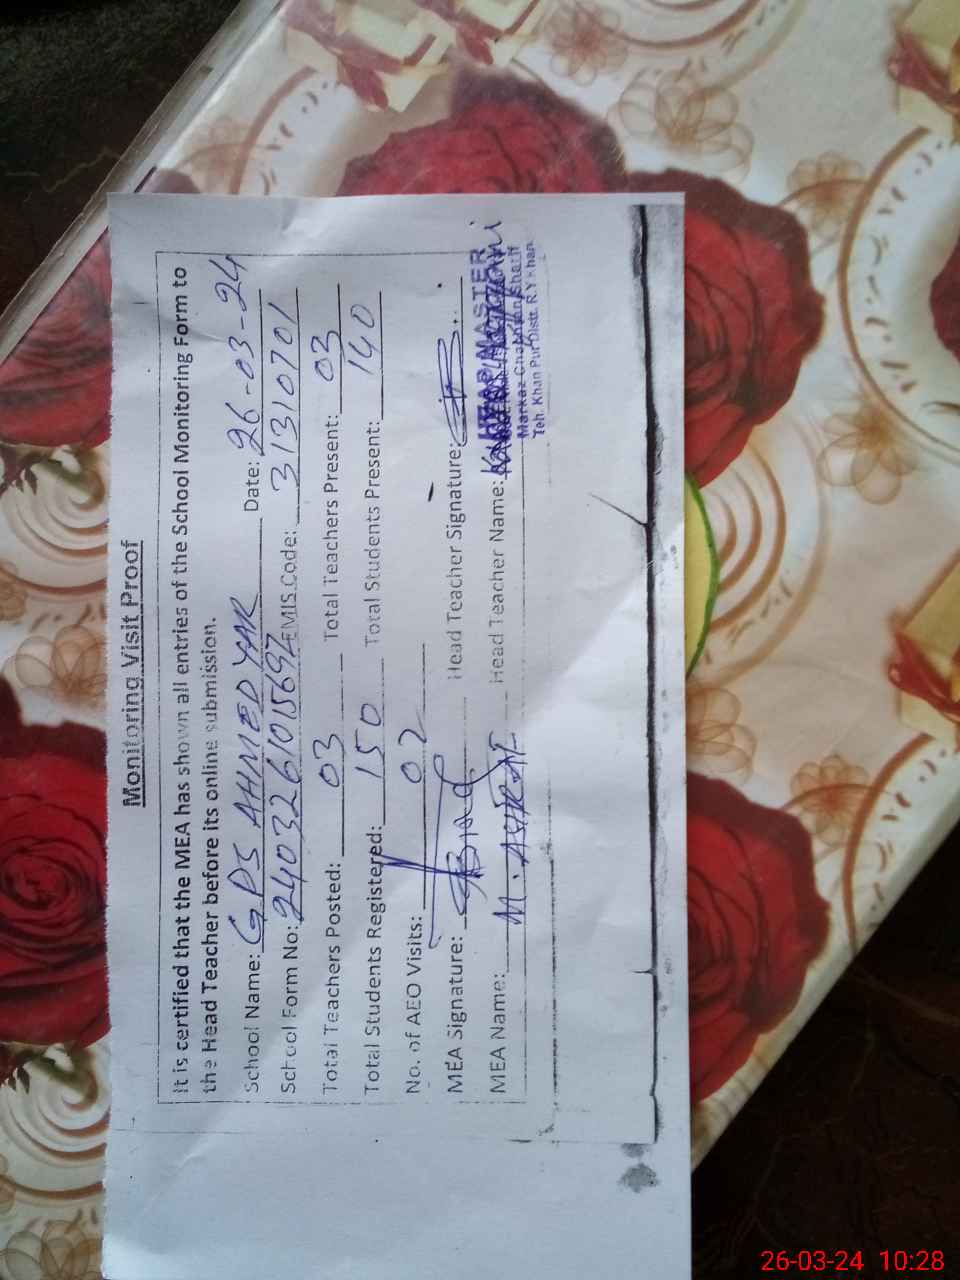 Monitoring Visit Proof
It is certified that the MEA has shown all entries of the School Monitoring Form to
the Head Teacher before its online submission.
School Name: GPS AHMED YAR Date: 26-03-24
School Form No: 2403261015697 EMIS Code: 31310701
Total Teachers Posted: 03 Total Teachers Present: 03
Total Students Registered: 150 Total Students Present: 140
No. of AEO Visits: 02
MEA Signature: Head Teacher Signature:
MEA Name: M. Head Teacher Name:
HEAD MASTER
Markaz Chachran Sharif
Teh. Khan Pur Distt. R.Y Khan
26-03-24 10:28